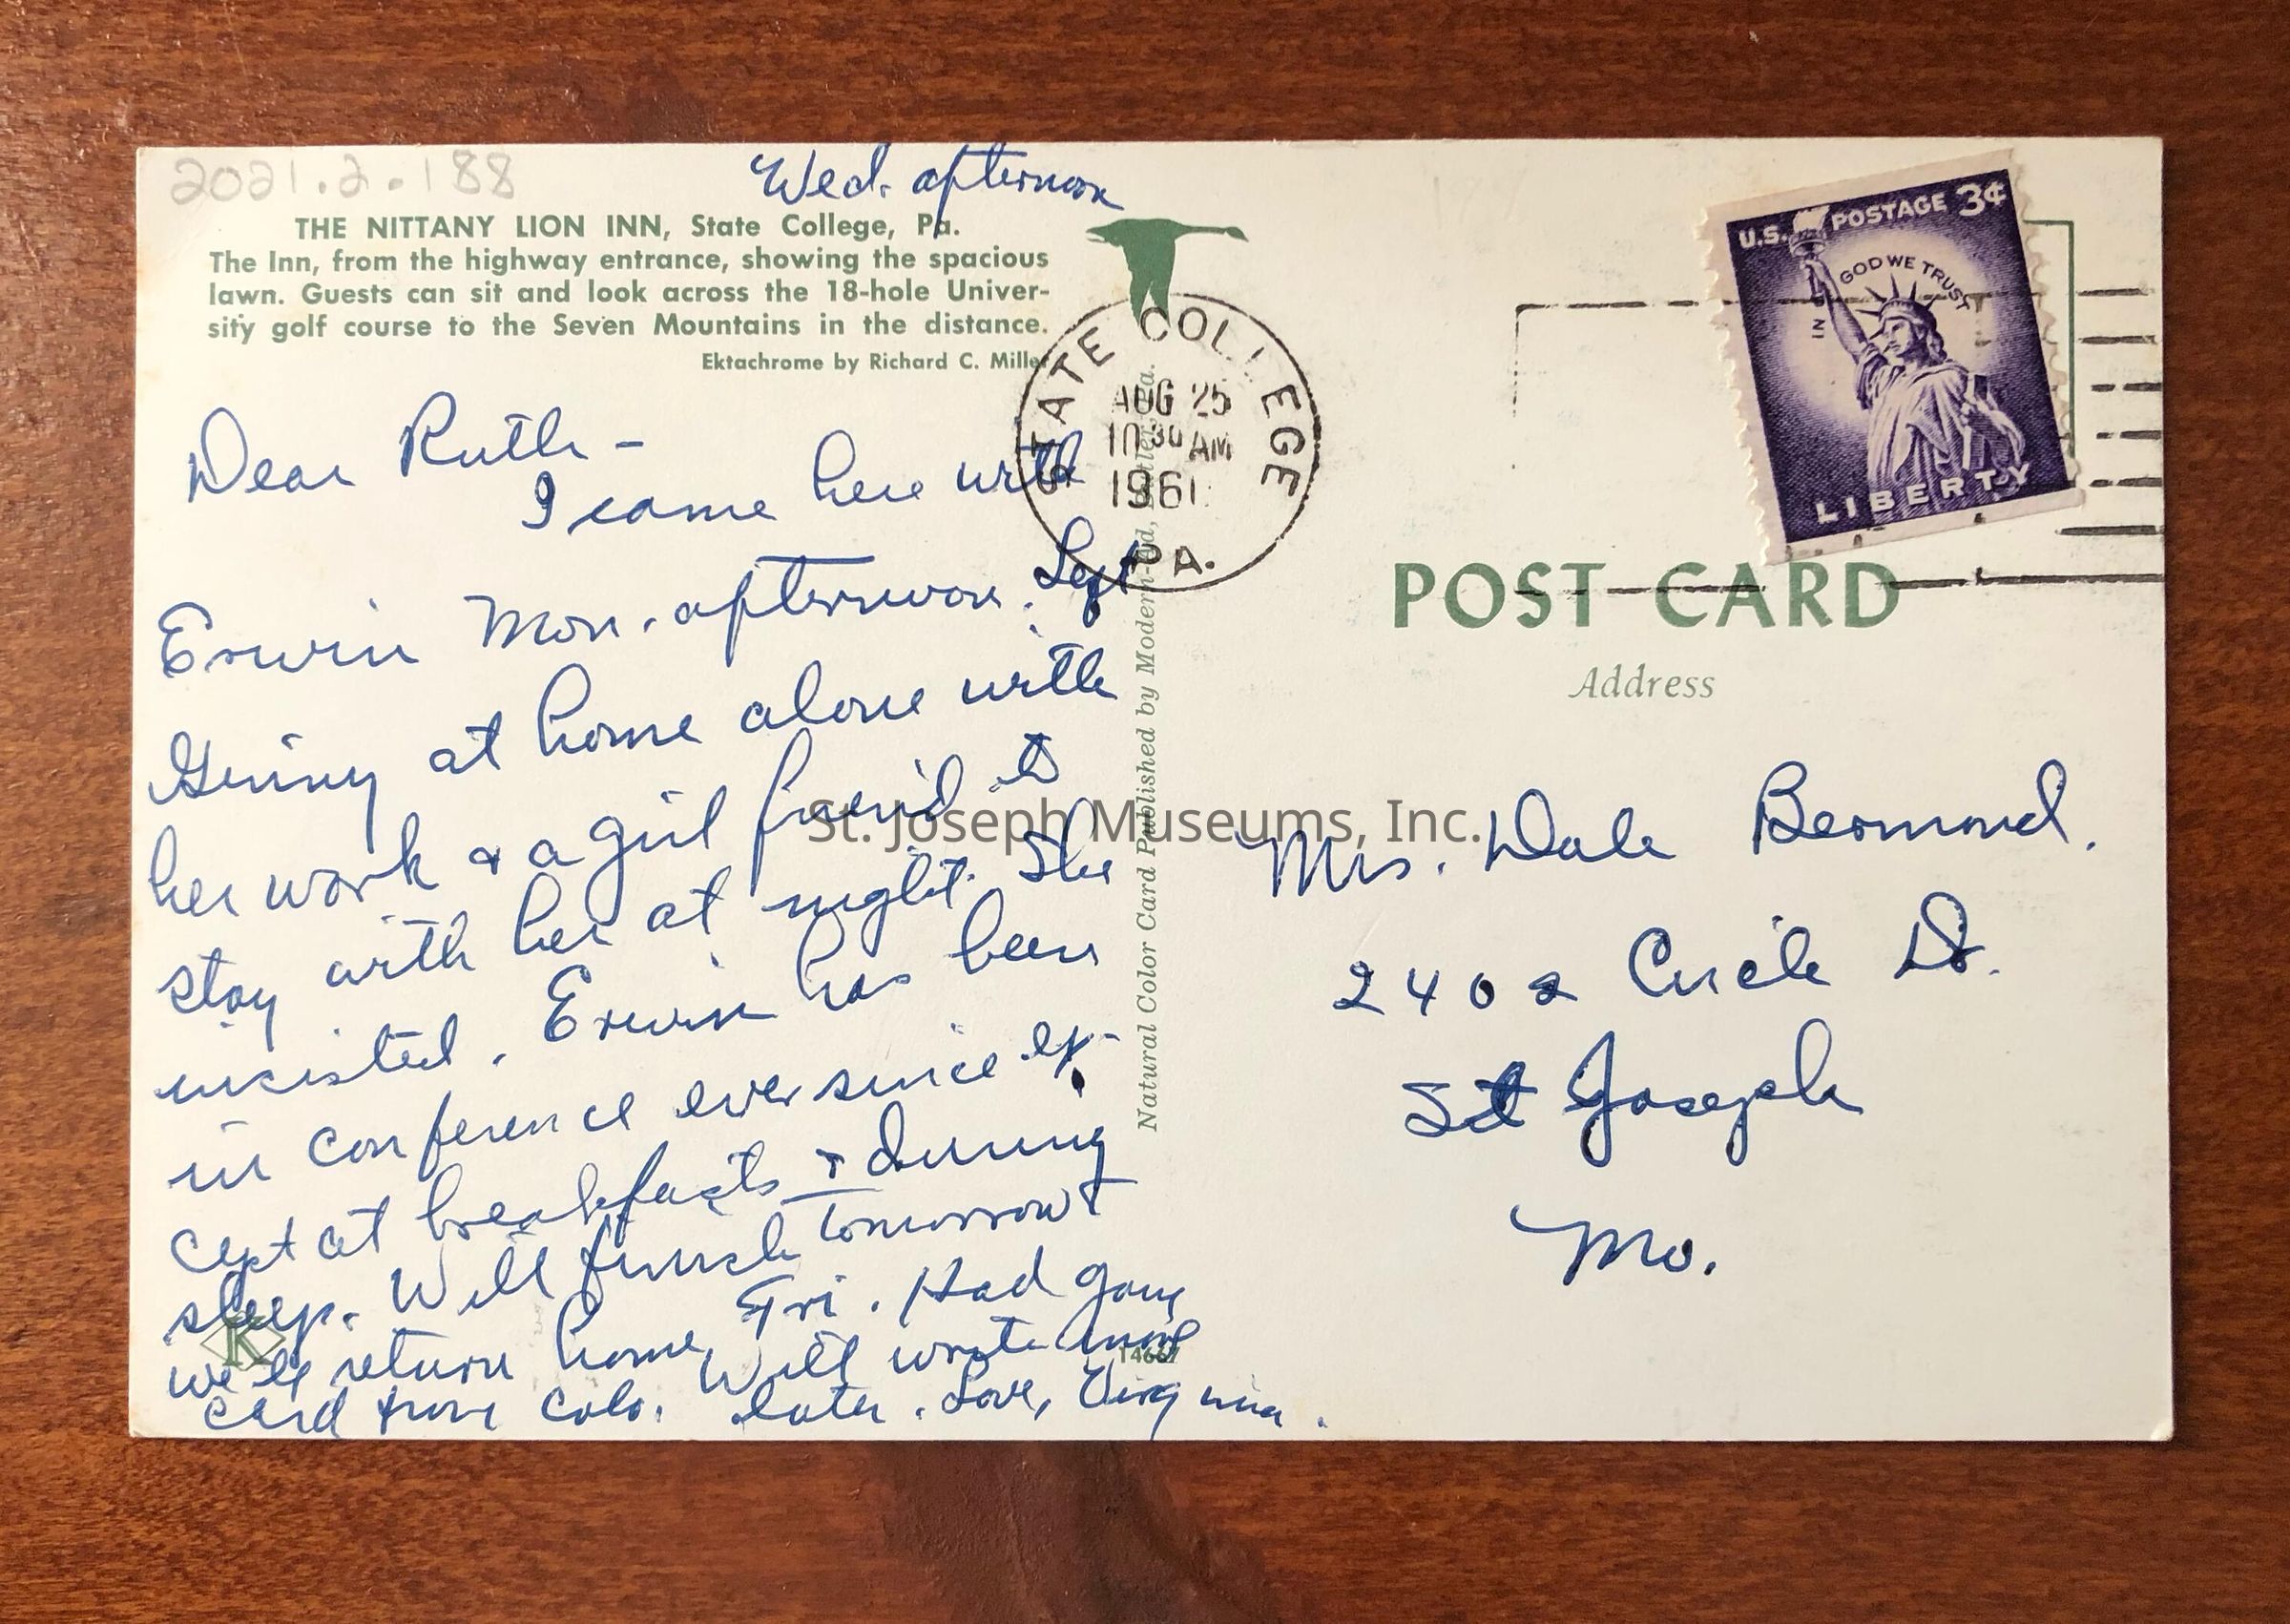 2021.2.188
Wed. afternoon
THE NITTANY LION INN, State College, Pa.
The Inn, from the highway entrance, showing the spacious
lawn. Guests can sit and look across the 18-hole Univer-
sity golf course to the Seven Mountains in the distance.
Ektachrome by Richard C. Miller
Dear Ruth -
I came here with
Erwin Mon. afternoon. Left
Ginny at home alone with
her work & a girl friend to
stay with her at night. She
insisted. Erwin has been
in conference ever since ex-
cept at breakfasts & during
sleep. Will finish tomorrow &
we'll return home Fri. Had gay
card from Colo. Will write more
later. Love, Virginia.
K
14667
Natural Color Card Published by Modern-Ad, Pa.
STATE COLLEGE
AUG 25
10 30 AM
1961
PA.
U.S. POSTAGE 3¢
IN GOD WE TRUST
LIBERTY
POST CARD
Address
Mrs. Dale Bermond.
2402 Circle Dr.
St Joseph
Mo.
St. Joseph Museums, Inc.